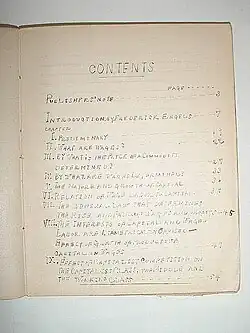 CONTENTS
PAGE
PUBLISHERS' NOTE 3
INTRODUCTION BY FREDERICK ENGELS 7
CHAPTER
I. PRELIMINARY
II. WHAT ARE WAGES?
III. BY WHAT IS THE PRICE OF A COMMODITY
DETERMINED?
IV. BY WHAT ARE WAGES DETERMINED?
V. THE NATURE AND GROWTH OF CAPITAL
VI. RELATION OF WAGE-LABOR TO CAPITAL
VII. THE GENERAL LAW THAT DETERMINES
THE RISE AND FALL OF WAGES AND PROFITS 45
VIII. THE INTERESTS OF CAPITAL AND WAGE-
LABOR ARE DIAMETRICALLY OPPOSED
EFFECT OF GROWTH OF PRODUCTIVE
CAPITAL ON WAGES
IX. EFFECT OF CAPITALIST COMPETITION ON
THE CAPITALIST CLASS, THE MIDDLE AND
THE WORKING CLASS